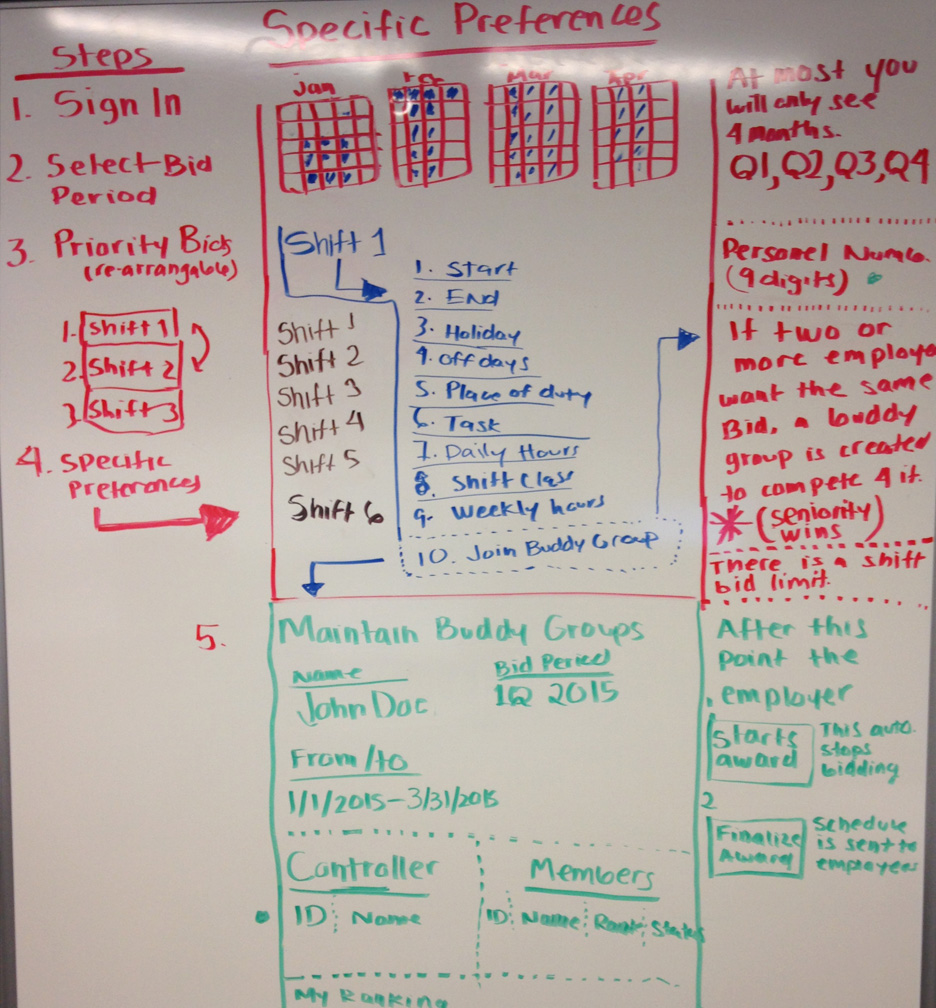 Specific Preferences
Steps
1. Sign In
2. Select Bid
Period
3. Priority Bids
(re-arrangable)
1. Shift 1
2. Shift 2
3. Shift 3
4. Specific
Preferences
Jan
Feb
Mar
Apr
Shift 1
1. Start
2. End
3. Holiday
4. Off days
5. Place of duty
6. Task
7. Daily Hours
8. Shift Class
9. Weekly hours
10. Join Buddy Group
Shift 1
Shift 2
Shift 3
Shift 4
Shift 5
Shift 6
At most you
will only see
4 months.
Q1, Q2, Q3, Q4
Personel Numb.
(9 digits)
If two or
more employe
want the same
Bid, a buddy
group is created
to compete 4 it.
(seniority
wins)
There is a shift
bid limit.
5.
Maintain Buddy Groups
Name
John Doe
Bid Period
1Q 2015
From/to
1/1/2015-3/31/2015
Controller
ID Name
Members
ID Name Rank Status
My Ranking
After this
point the
employer
Starts
award
This auto.
stops
bidding
2
Finalize
Award
Schedule
is sent to
employees